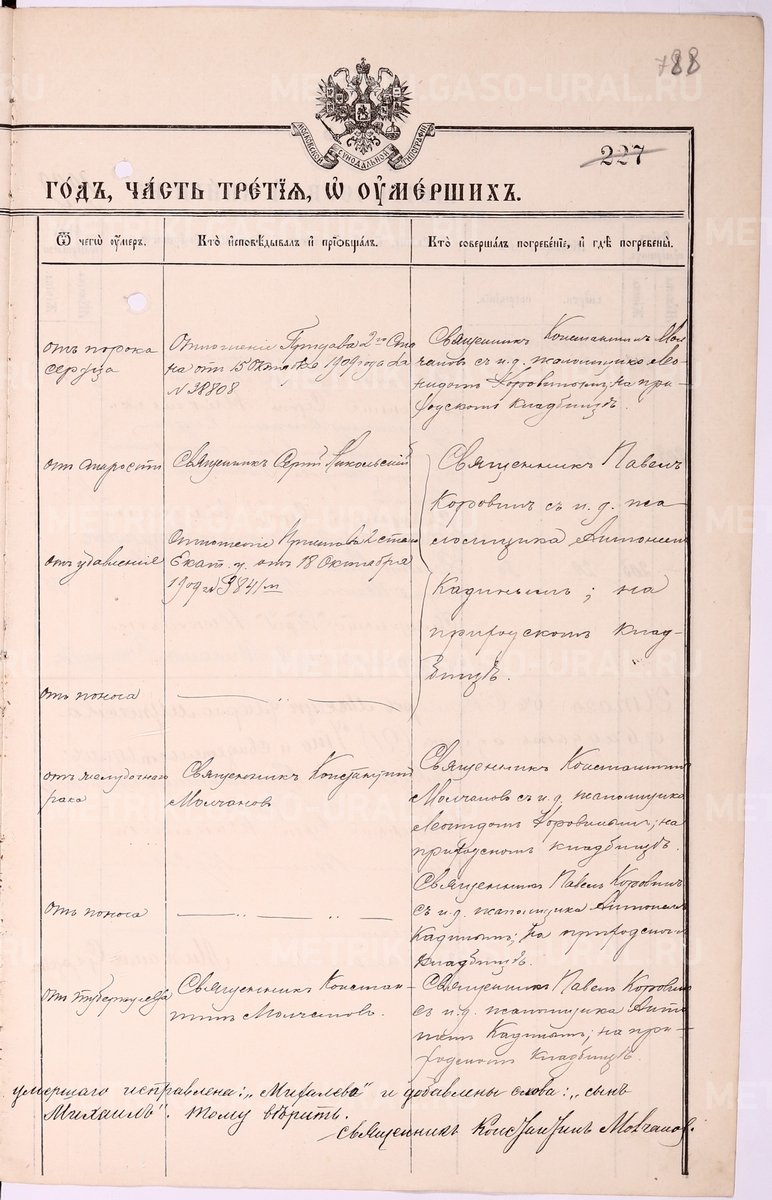 788
227
МОСКОВСКОЙ СѴНОДАЛЬНОЙ ТИПОГРАФІИ
ГО́ДЪ, ЧА́СТЬ ТРЕ́ТІѦ, Ѡ ОУ҆МЕ́РШИХЪ.
Ѿ чегѡ̀ оу҆́меръ.
Кто̀ и҆сповѣ́дывалъ и҆ прїобща́лъ.
Кто̀ соверша́лъ погребе́нїе, и҆ гдѣ̀ погребены̀.
отъ порока
сердца
Отношеніе Пристава 2го Ста
на от 15 Октября 1909 года за
№ 28808
Священникъ Константинъ Мол
чановъ съ и.д. псаломщика Лео
нидомъ Коровинымъ; на при-
ходскомъ кладбищѣ.
отъ старости
Священникъ Сергій Никольскій
Священникъ Павелъ
Коровинъ съ и. д. пса-
ломщика Антоніемъ
Кадинымъ; на
приходскомъ клад-
бищѣ.
отъ удавленія
Отношеніе Пристава 2 стана
Екат. у. отъ 18 Октября
1909 г.
отъ поноса
отъ желудочнаго
рака
Священникъ Константинъ
Молчановъ
Священникъ Константинъ
Молчановъ съ и.д. псаломщика
Леонидомъ Коровинымъ; на
приходскомъ кладбищѣ.
отъ поноса
Священникъ Павелъ Коровинъ
съ и.д. псаломщика Антоніемъ
Кадинымъ; на приходскомъ
кладбищѣ.
отъ туберкулеза
Священникъ Констан-
тинъ Молчановъ.
Священникъ Павелъ Коровинъ
съ и.д. псаломщика Анто
ніемъ Кадинымъ; на при-
ходскомъ кладбищѣ.
умершаго исправлена: „Михалева" и добавлены слова: „сынъ
Михаилъ". Тому вѣрить.
священникъ Константинъ Молчановъ.
METRIKI.GASO-URAL.RU